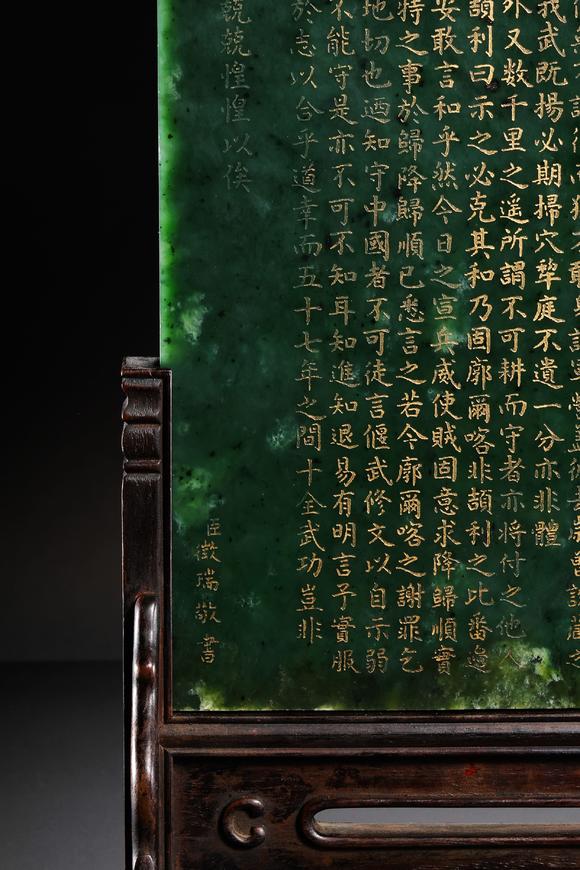 我武既揚必期掃穴犂庭不遺一分亦非體
外又數千里之遥所謂不可耕而守者亦將付之他人
頡利曰示之必克其和乃固廓爾喀非頡利之比番邊
安敢言和乎然今日之宣兵威使賊固意求降歸順實
特之事於歸降歸順已悉言之若今廓爾喀之謝罪乞
地切也迺知守中國者不可徒言偃武修文以自示弱
不能守是亦不可不知耳知進知退易有明言予實服
於志以合乎道幸而五十七年之間十全武功豈非
兢兢惶惶以俟
臣徵瑞敬書